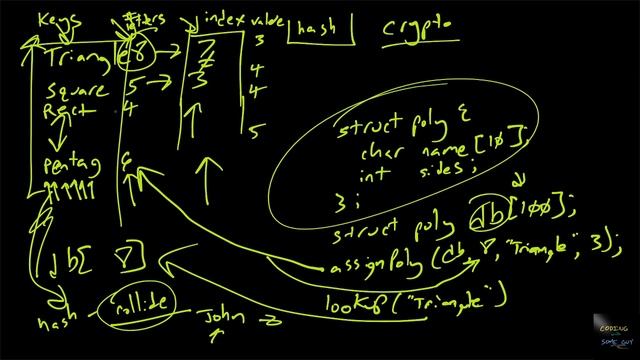 Keys
index value
hash
crypto
Triangle 8 → 7
3
square 5 → 3
4
Rect 4
4
5
pentag 6
struct poly {
char name [10];
int sides;
};
struct poly db[100];
assignPoly (db, 8, "Triangle", 3);
db[ 8 ]
lookup("Triangle")
hash
collide
John
CODING
SOME GUY